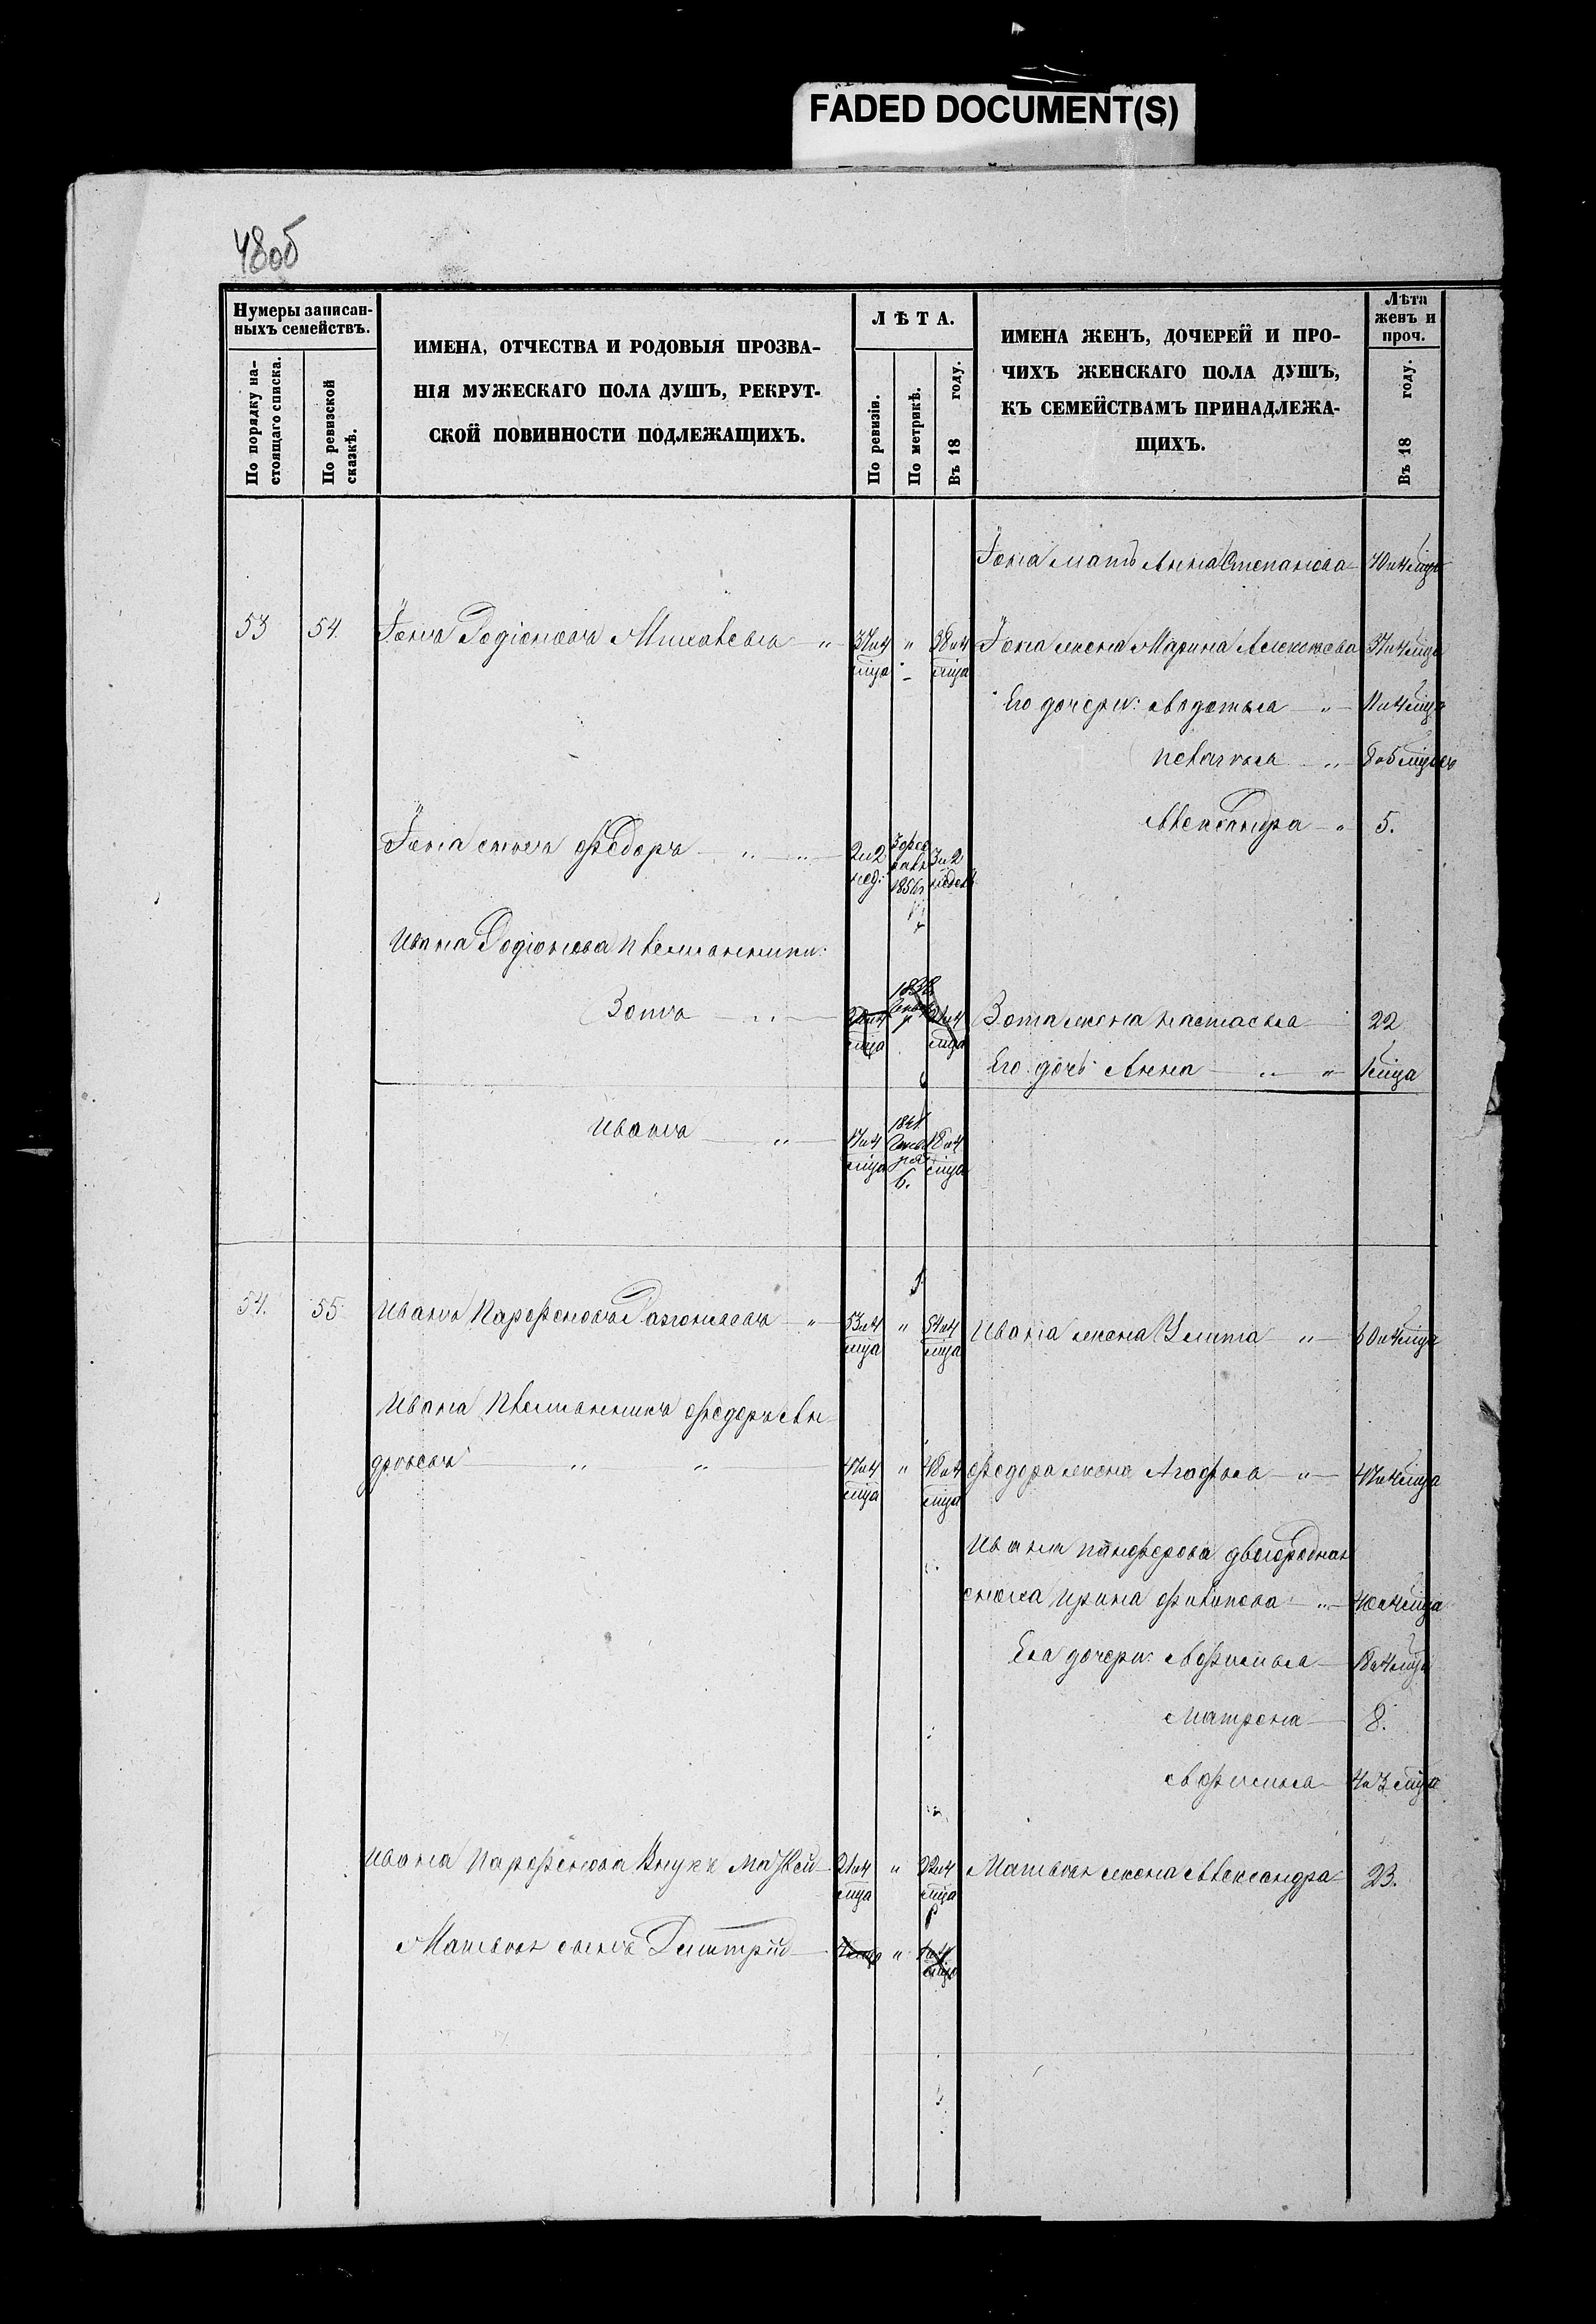 FADED DOCUMENT(S)
48об
Нумеры записан-
ныхъ семействъ.
По порядку на-
стоящаго списка.
По ревизской
сказкѣ.
ИМЕНА, ОТЧЕСТВА И РОДОВЫЯ ПРОЗВА-
НІЯ МУЖЕСКАГО ПОЛА ДУШЪ, РЕКРУТ-
СКОЙ ПОВИННОСТИ ПОДЛЕЖАЩИХЪ.
ЛѢТА.
По ревизіи.
По метрикѣ.
Въ 18 году.
ИМЕНА ЖЕНЪ, ДОЧЕРЕЙ И ПРО-
ЧИХЪ ЖЕНСКАГО ПОЛА ДУШЪ,
КЪ СЕМЕЙСТВАМЪ ПРИНАДЛЕЖА-
ЩИХЪ.
Лѣта
женъ и
проч.
Въ 18 году.
Іона мать Анна Степанова 70 и 4 мца
53 54. Іона Родіоновъ " 37 и 4 мца " 38 и 4 мца Іона жена Марина Алексѣева 37 и 4 мца
Его дочери: Авдотья " 11 и 4 мца
Пелагея " 8 и 5 мцовъ
Александра " 5.
Іона сынъ Ѳедоръ " " 2 и 2 нед: 1856 3 и 2 недель
Ивана Родіонова племянники:
Зотъ " 1838 Зота жена Настасья 22
Его дочь Анна " " мца
Иванъ " 17 и 4 мца 1841 6. 18 и 4 мца
54. 55. Иванъ Парфеновъ " 53 и 4 мца " 54 и 4 мца Ивана жена Улита " 60 и 4 мца
Ивана племянникъ Ѳедоръ Ан-
дреевъ " " 47 и 4 мца " 48 и 4 мца Ѳедора жена Агафья " 47 и 4 мца
Ивана двоюродная
Ирина Филипова " 40 и 4 мца
Ея дочери: Афимья 18 и 4 мца
Матрена 8.
Афимья 4 и 3 мца
Ивана Парфенова внукъ Матвей 21 и 4 мца " 22 и 4 мца Матвея жена Александра 23.
Матвея сынъ Дмитрій "